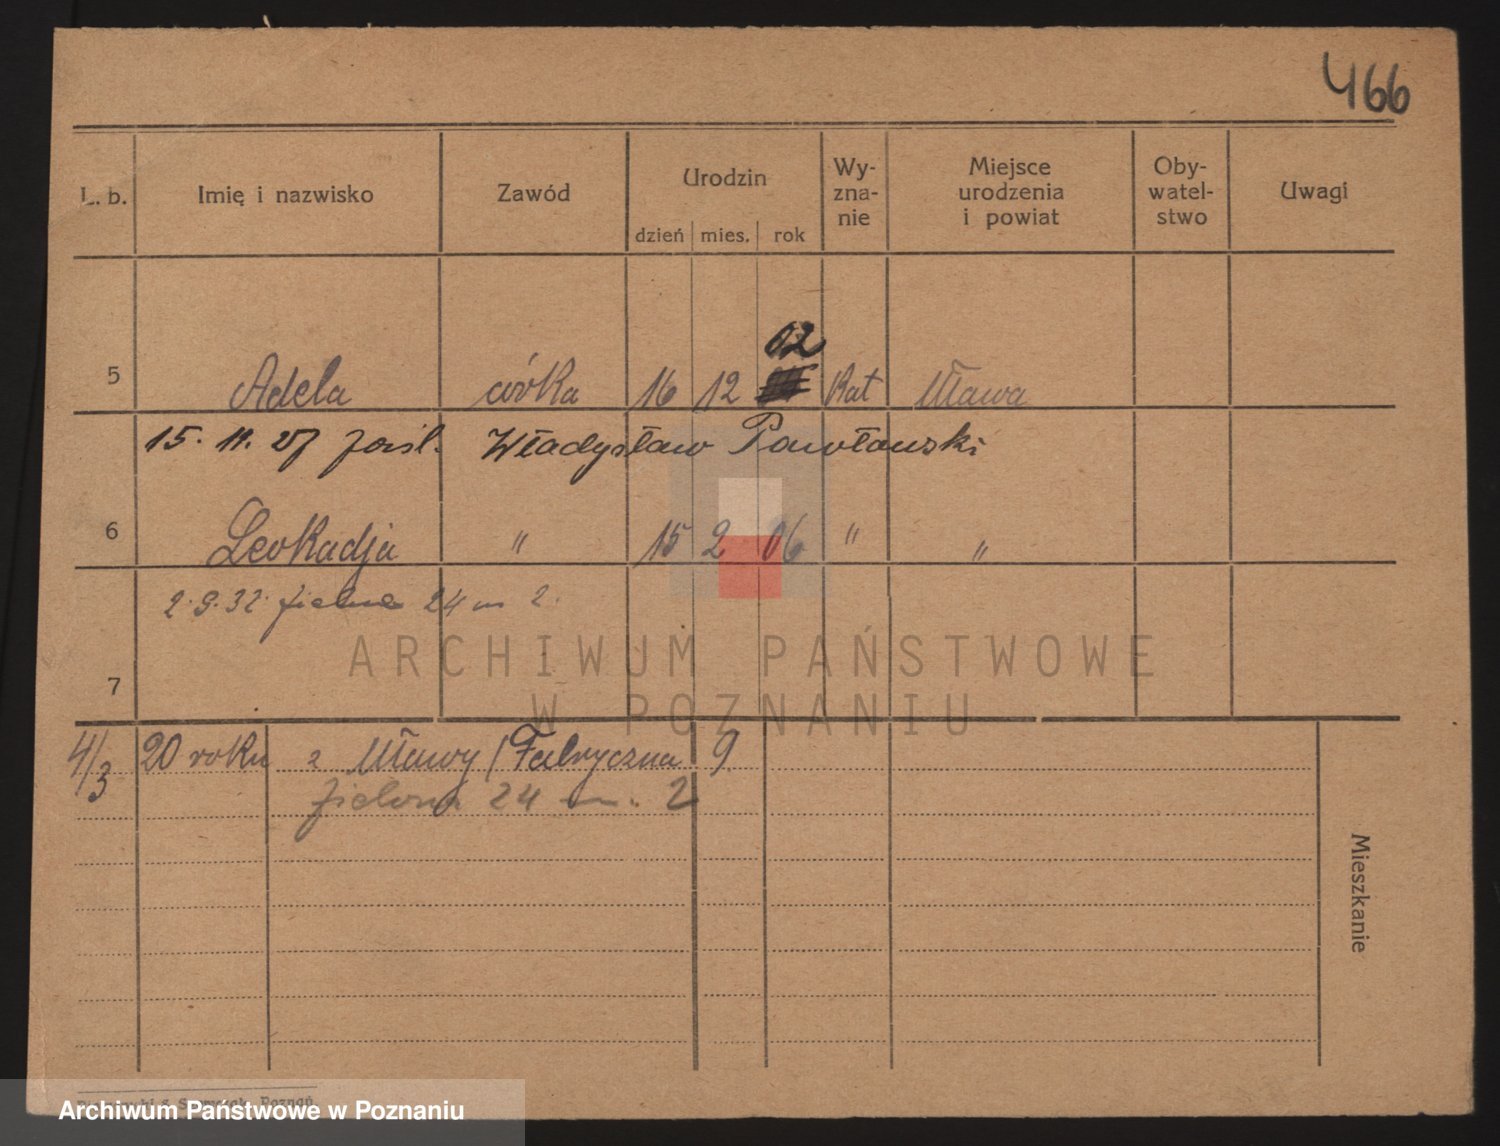 466
L. b. Imię i nazwisko Zawód Urodzin dzień mies. rok Wy-zna-nie Miejsce urodzenia i powiat Oby-watel-stwo Uwagi
02
5 Adela córka 16 12 Kat Mława
15. 11. 27 zaśl. Władysław Pawłowski
6 Leokadja " 15 2 06 " "
2.9.32. Zielona 24 m 2.
ARCHIWUM PAŃSTWOWE
7
W POZNANIU
4/3 20 roku z Mławy / Fabryczna 9
Zielona 24 m. 2
Mieszkanie
Poznań
Archiwum Państwowe w Poznaniu